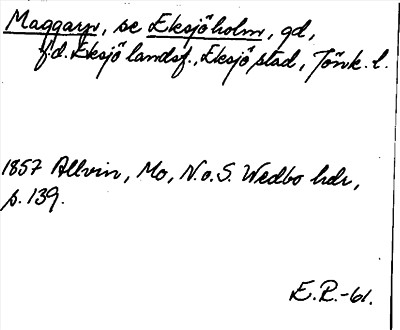 Maggarp, se Eksjöholm, gd,
f.d. Eksjö landsf., Eksjö stad, Jönk. l.
1857 Allvin, Mo, N.o.S. Wedbo hdr,
s. 139.
E.R.-61.